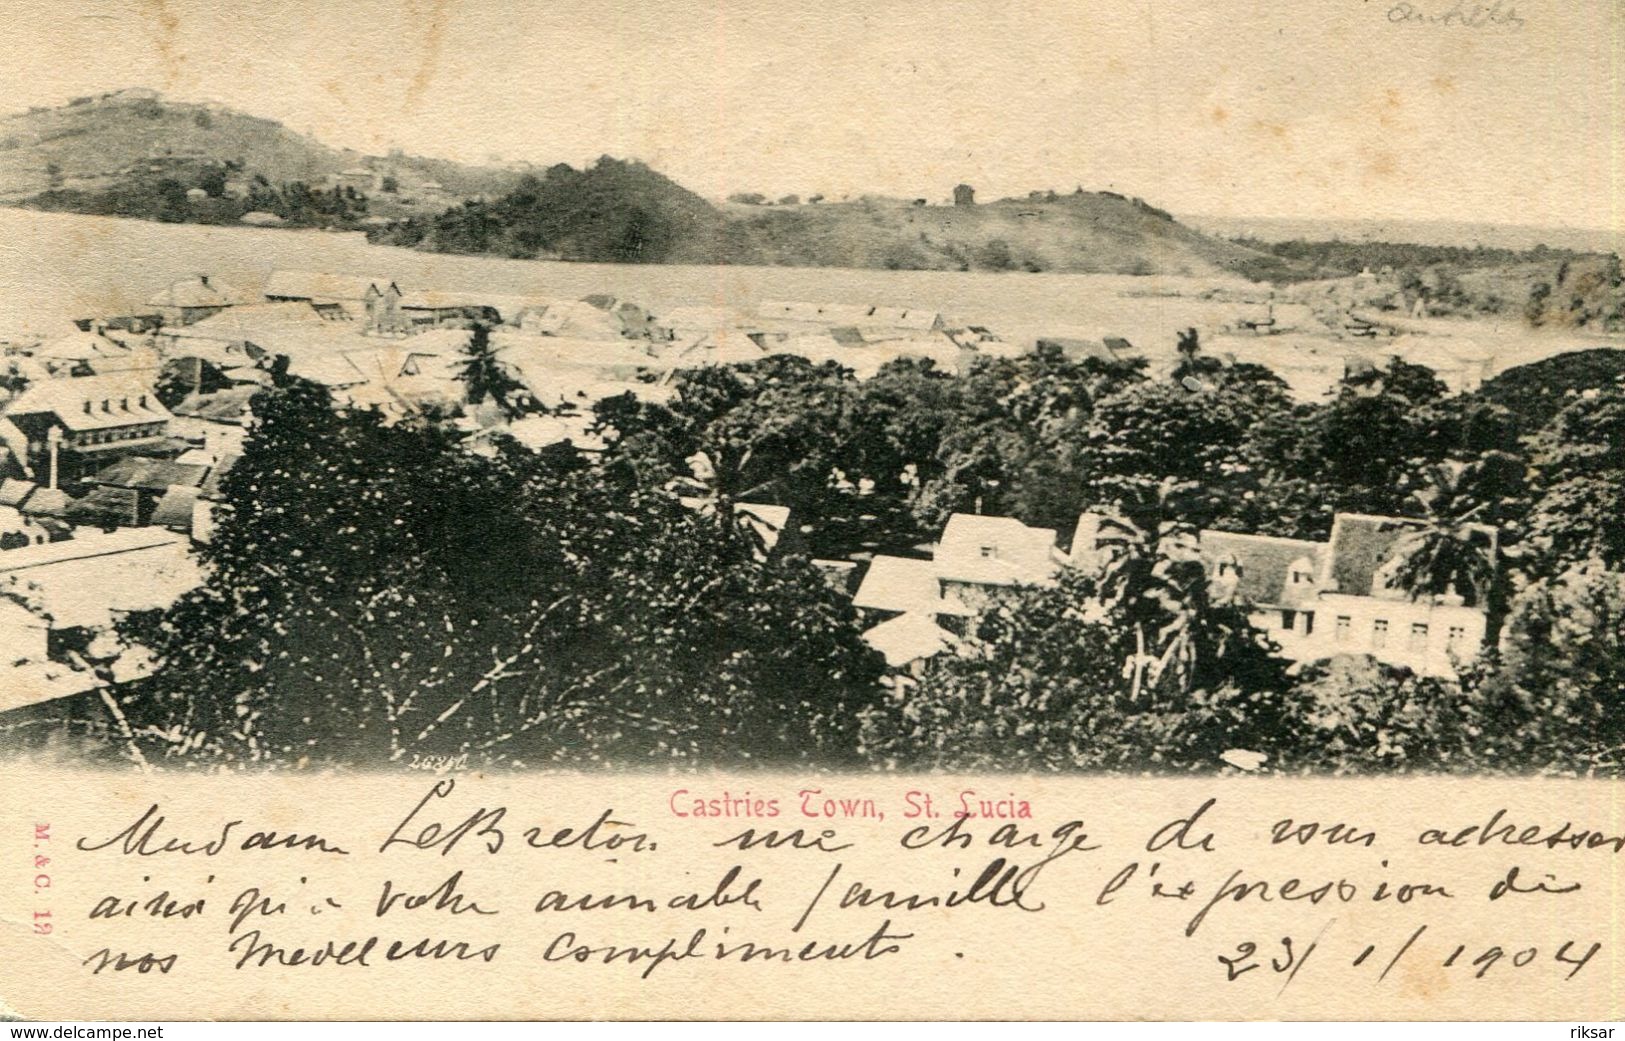 antilles
26210
Castries Town, St. Lucia
M. & C. 12
Madame LeBreton me charge de vous adresser
ainsi qu'à votre aimable famille l'expression de
nos meilleurs compliments.
23/1/1904
www.delcampe.net
riksar